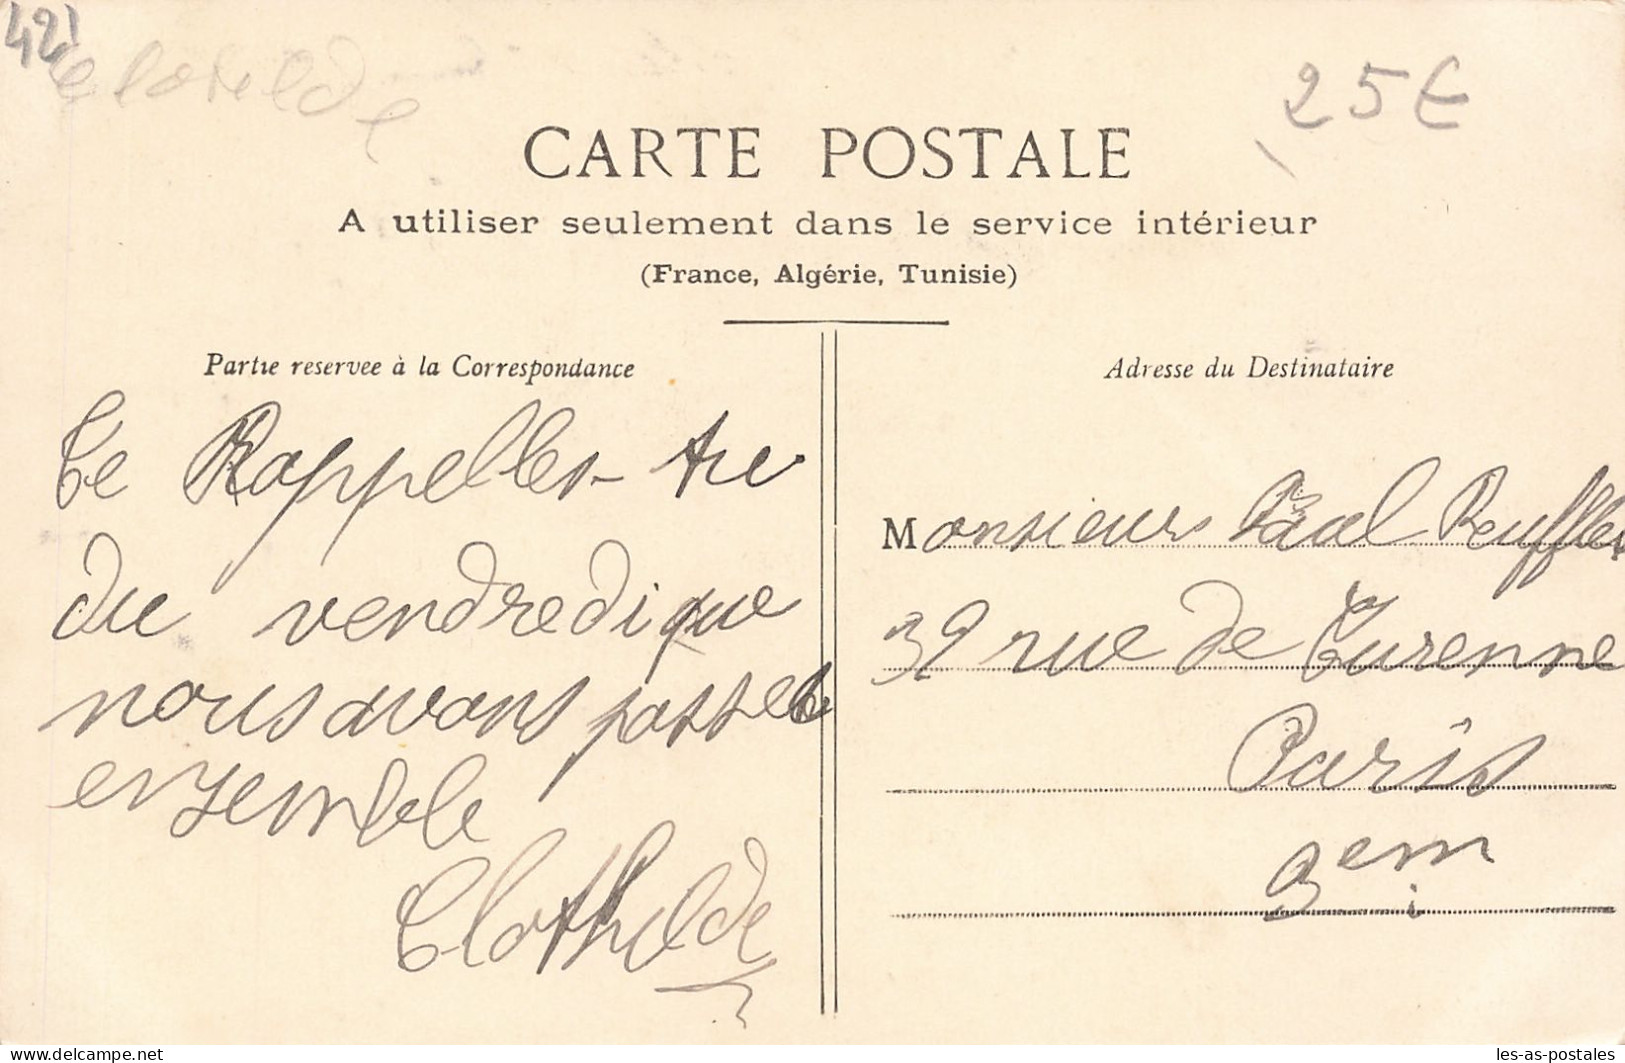 421
Clotilde
25€
CARTE POSTALE
A utiliser seulement dans le service intérieur
(France, Algérie, Tunisie)
Partie reservee à la Correspondance
Te Rappelles-tue
due vendredi que
nous avons passée
ensemble
Clothilde
Adresse du Destinataire
Monsieur Paul Reuffles
39 rue de Turenne
Paris
3em
delcampe.net
les-as-postales